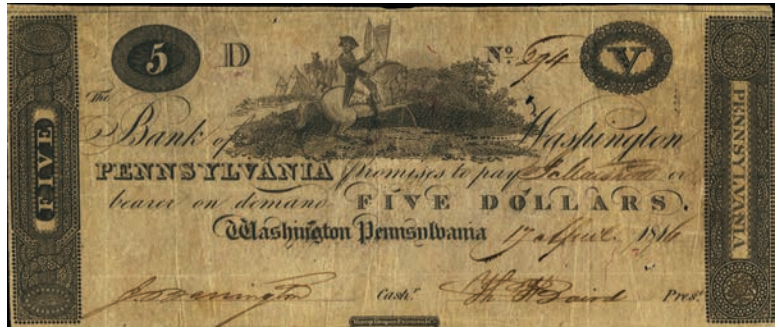 5 D Nº 294 V
The
Bank of Washington
PENNSYLVANIA promises to pay or
bearer on demand FIVE DOLLARS.
Washington Pennsylvania 17 april 1816
Cashr. Baird Prest.
FIVE
PENNSYLVANIA